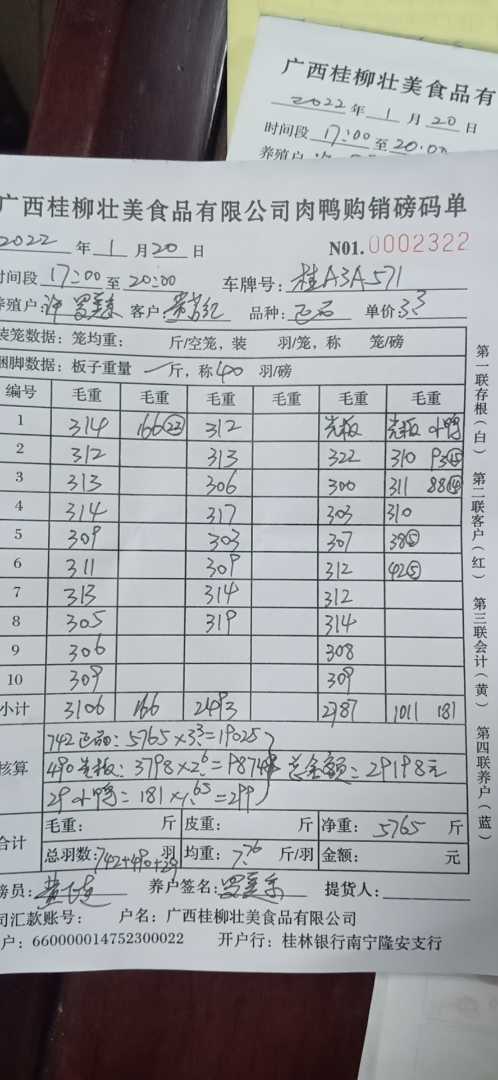 广西桂柳壮美食品有
2022年1月20日
时间段17:00至20:00
广西桂柳壮美食品有限公司肉鸭购销磅码单
2022年1月20日 N01.0002322
时间段17:00至20:00 车牌号:桂A3A571
养殖户: 客户 品种:正品 单价3.3
装笼数据:笼均重: 斤/空笼,装 羽/笼,称 笼/磅
捆脚数据:板子重量 一斤,称40羽/磅
编号 毛重 毛重 毛重 毛重 毛重 毛重
1 314 166㉓ 312 光板 光板 小鸭
2 312 313 322 310 93⑮
3 313 306 300 311 88⑭
4 314 317 303 310
5 309 303 307 38⑤
6 311 309 312 42⑤
7 313 314 312
8 305 319 314
9 306 308
10 309 309
小计 3106 166 2493 2787 1011 181
核算
742正品:5765×3.3=19025
490光板:3798×2.6=9874 总金额:29198元
29小鸭=181×1.65=299
合计
毛重: 斤 皮重: 斤 净重:5765斤
总羽数:742+490+29羽 均重:7.76斤/羽 金额: 元
磅员: 养户签名: 提货人:
司汇款账号: 户名:广西桂柳壮美食品有限公司
户:660000014752300022 开户行:桂林银行南宁隆安支行
第一联存根(白) 第二联客户(红) 第三联会计(黄) 第四联养户(蓝)